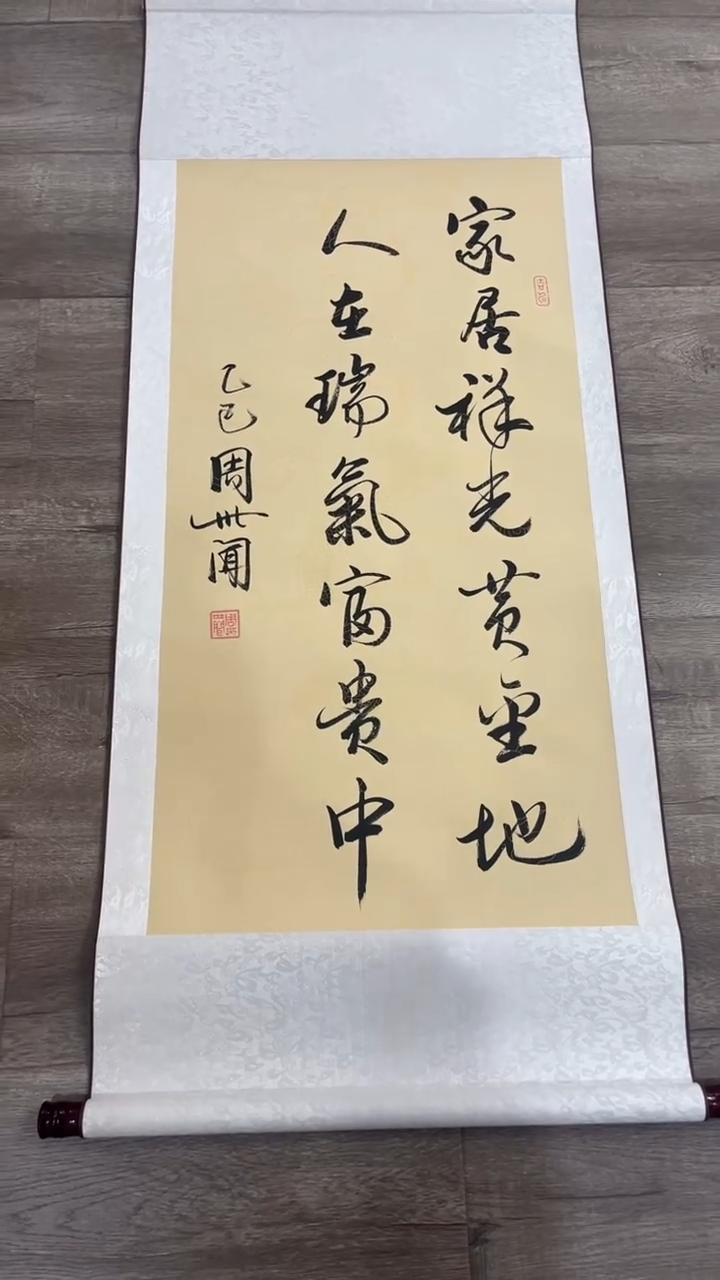 家居祥光黄金地
人在瑞氣富貴中
乙巳周世闻